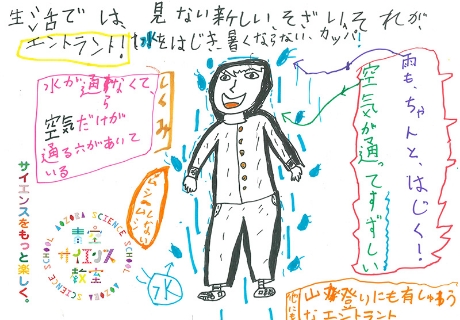 生活では、見ない新しい、そざい、それが、
エントラント!水をはじき、暑くならない、カッパ!
しくみ
水が通らなくて、
空気だけが
通る穴があいて
いる
ムシムシしない
水
雨も、ちゃんと、はじく!
空気が通ってすずしい
サイエンスをもっと楽しく。
AOZORA SCIENCE SCHOOL
青空
サイエンス
教室
山登りにも有しゅう
なエントラント